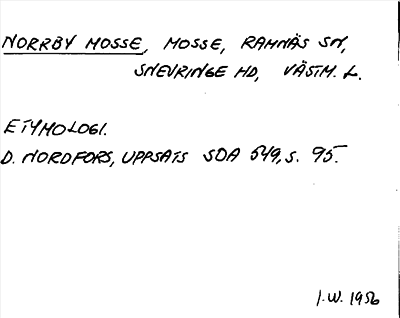 NORRBY MOSSE, MOSSE, RAMNÄS SN,
SNEVRINGE HD, VÄSTM. L.
ETYMOLOGI.
D. NORDFORS, UPPSATS SOA 549, S. 95.
I.W. 1956